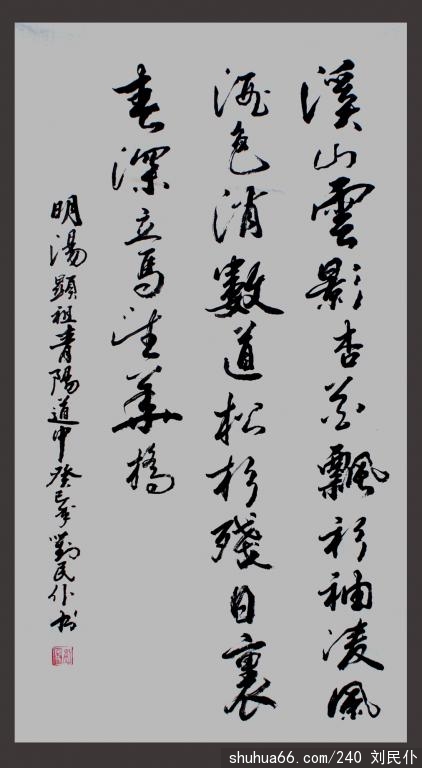 溪山雲影杏花飄衫袖凌風
酒色消數道松杉殘日裏
春深立馬望華橋
明湯顯祖青陽道中癸巳年劉民仆書
shuhua66.com/240 刘民仆